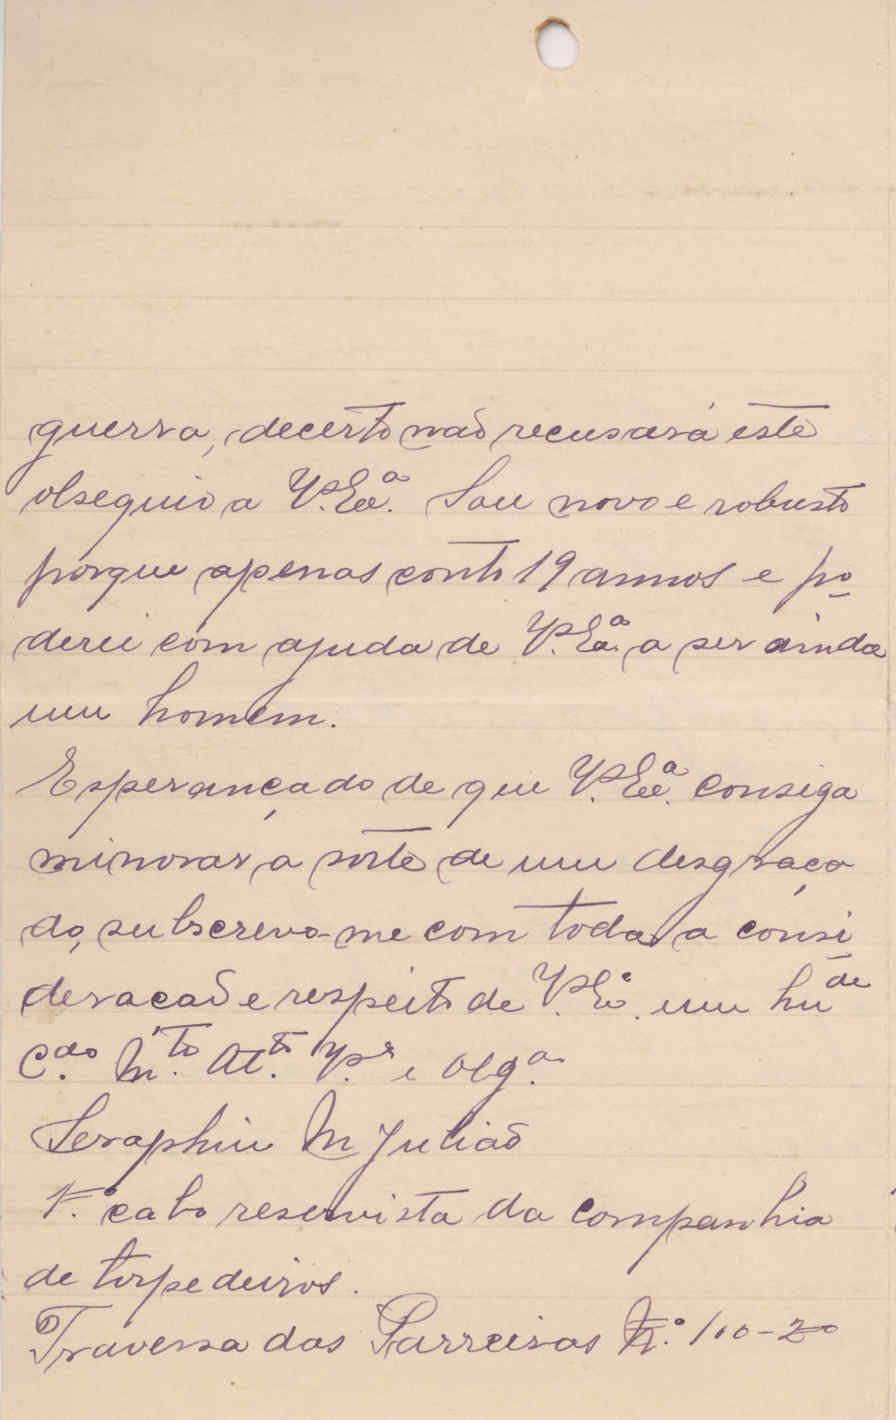 guerra, decerto não recusará este
obsequio a V. Exª. Sou novo e robusto
porque apenas conto 19 annos e po
derei com ajuda de V. Exª. a ser ainda
um homem.
Esperançado de que V. Exª. consiga
minorar a sorte de um desgraça
do, subscrevo-me com toda a consi
deracaõ e respeito de V. Eª. um hu de
C.do M.to At.to V.r e Obg.o
Seraphim M Julião
1º. cabo reservista da companhia
de torpedeiros.
Travessa das Parreiras N.º 100-2º